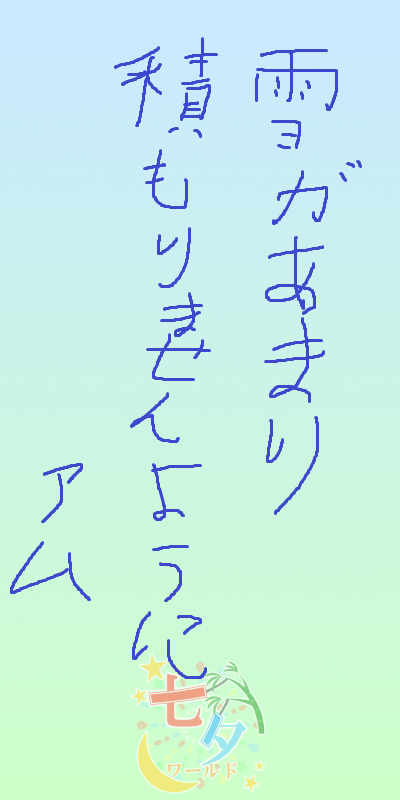 雪があまり
積もりませんように
アム
七夕
ワールド